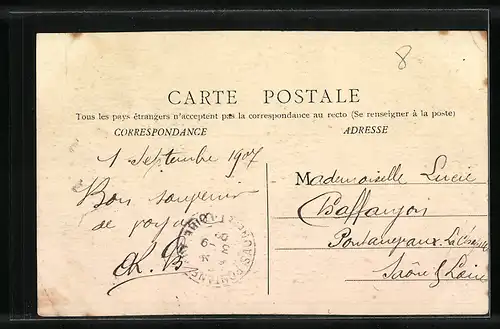 8
CARTE POSTALE
Tous les pays étrangers n'acceptent pas la correspondance au recto (Se renseigner à la poste)
CORRESPONDANCE
ADRESSE
1 Septembre 1907
Bon souvenir
de
Mademoiselle Lucie
Chaffanjon
Pontanevaux
Saône & Loire